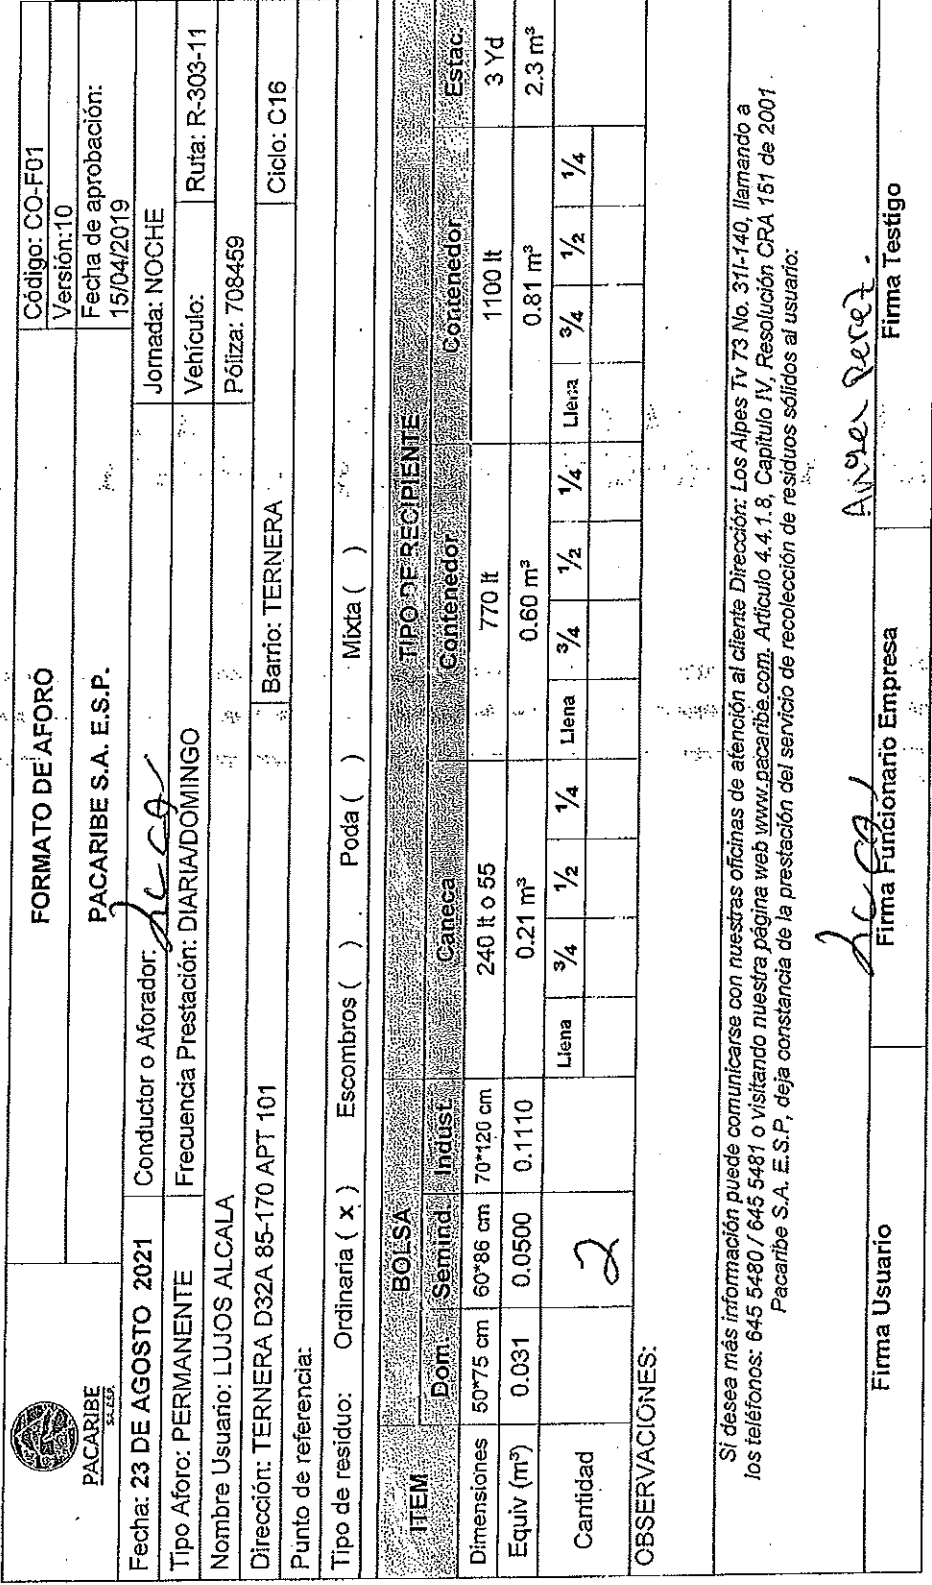 PACARIBE
S.A. E.S.P.
FORMATO DE AFORO
PACARIBE S.A. E.S.P.
Código: CO-F01
Versión:10
Fecha de aprobación:
15/04/2019
Fecha: 23 DE AGOSTO 2021 Conductor o Aforador: Jornada: NOCHE
Tipo Aforo: PERMANENTE Frecuencia Prestación: DIARIA/DOMINGO Vehículo: Ruta: R-303-11
Nombre Usuario: LUJOS ALCALA Póliza: 708459
Dirección: TERNERA D32A 85-170 APT 101 Barrio: TERNERA Ciclo: C16
Punto de referencia:
Tipo de residuo: Ordinaria ( x ) Escombros ( ) Poda ( ) Mixta ( )
ITEM BOLSA TIPO DE RECIPIENTE
Dom. Semind. Indust. Caneca Contenedor Contenedor Estac.
Dimensiones 50*75 cm 60*86 cm 70*120 cm 240 lt o 55 770 lt 1100 lt 3 Yd
Equiv (m³) 0.031 0.0500 0.1110 0.21 m³ 0.60 m³ 0.81 m³ 2.3 m³
Cantidad 2 Llena ¾ ½ ¼ Llena ¾ ½ ¼ Llena ¾ ½ ¼
OBSERVACIONES:
Si desea más información puede comunicarse con nuestras oficinas de atención al cliente Dirección: Los Alpes Tv 73 No. 31I-140, llamando a
los teléfonos: 645 5480 / 645 5481 o visitando nuestra página web www.pacaribe.com. Artículo 4.4.1.8, Capítulo IV, Resolución CRA 151 de 2001.
Pacaribe S.A. E.S.P, deja constancia de la prestación del servicio de recolección de residuos sólidos al usuario:
Angel Perez.
Firma Usuario Firma Funcionario Empresa Firma Testigo